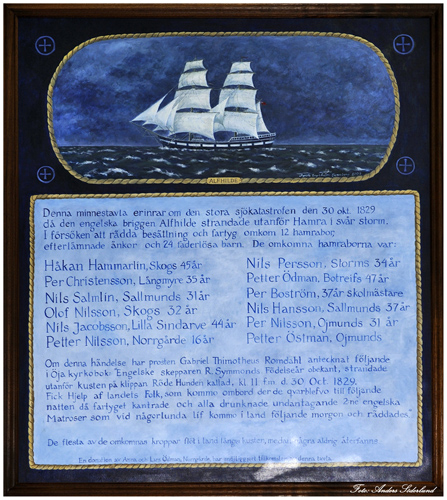 ALFHILDE
Denna minnestavla erinrar om den stora sjökatastrofen den 30 okt. 1829
då den engelska briggen Alfhilde strandade utanför Hamra i svår storm.
I försöken att rädda besättning och fartyg omkom 12 hamrabor,
efterlämnade änkor och 24 faderlösa barn. De omkomna hamraborna var:
Håkan Hammarlin, Skogs 45 år
Per Christensson, Långmyre 35 år
Nils Salmlin, Sallmunds 31 år
Olof Nilsson, Skogs 32 år
Nils Jacobsson, Lilla Sindarve 44 år
Petter Nilsson, Norrgårde 16 år
Nils Persson, Storms 34 år
Petter Ödman, Botreifs 47 år
Per Boström, 37 år skolmästare
Nils Hansson, Sallmunds 37 år
Per Nilsson, Ojmunds 31 år
Petter Östman, Ojmunds
Om denna händelse har prosten Gabriel Thimotheus Romdahl antecknat följande
i Öja kyrkobok: Engelske skepparen R. Symmonds Födelseår obekant, strandade
utanför kusten på klippan Röde Hunden kallad, kl 11 f.m d. 30 Oct. 1829.
Fick Hjelp af landets Folk, som komme ombord der de qvarblefvo till följande
natten då fartyget kantrade och alla drunknade undantagande 2ne engelska
Matroser som vid någorlunda lif komme i land följande morgon och räddades"
De flesta av de omkomnas kroppar flöt i land längs kusten, medan några aldrig återfanns
Foto: Anders Söderlund